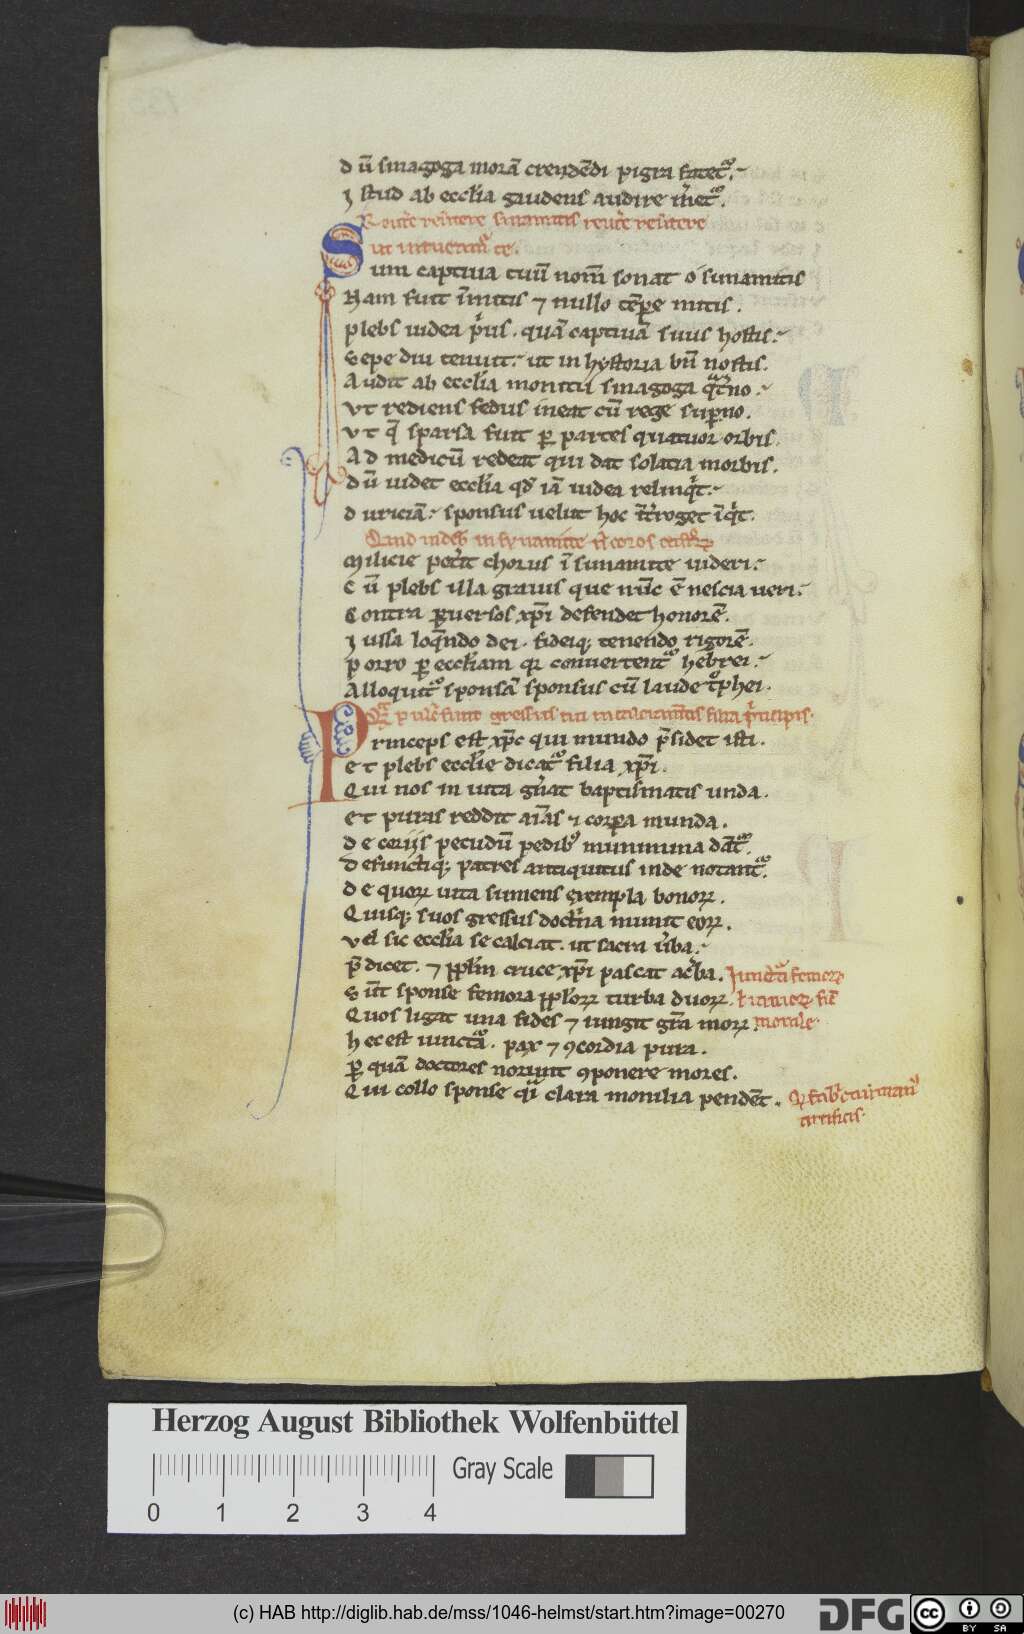 dū sinagoga morā credēdi pigra fatet᷑.
istud ab ecclīa gaudens audire m̄et᷑.
Reũtere reũtere sunamitis reũtere reũtere
ut intueamur te.
Sum captiua tuū nom̄ sonat o sunamitis
Nam fuit īmitis ⁊ nullo tēpe mitis.
plebs iudea p̄us. quā captiuā suus hostis.
Sepe diu tenuit. ut in hystoria bn̄ nostis.
Audit ab ecclīa monitū sinagoga
Vt rediens fedus ineat cū rege supno.
Vt q̄ sparsa fuit ꝑ partes quatuor orbis.
Ad medicū redeat qui dat solatia morbis.
dū uidet ecclīa qd iā iudea relinqt.
duriciā. sponsus uelut hoc īt̄roget īqt.
Quid uideb in synamite n̄ coros castroꝝ
Milicie pet̄it chorus ī sunamite uideri.
Cū plebs illa grauis que nūc ē nescia ueri.
Contra ꝑuersos xp̄i defendet honorē.
Iussa loq̄ndo dei. fideiq; tenendo rigorē.
porro ꝑ eccliam qr conuertent᷑ hebrei.
Alloquit᷑ sponsā sponsus cū laude t᷑phei.
Qā pulc̄ sunt gressus tui in calciam̄tis filia p̄ncipis.
Princeps est xp̄c qui mundo p̄sidet isti.
Et plebs ecclīe dicat᷑ filia xp̄i.
Qui nos in uita gn̄at baptismatis unda.
Et puras reddit aīas ⁊ corꝑa munda.
de corijs pecudū pedibꝰ munimina dāt᷑.
defunctiq; patres antiquitus inde notant᷑.
de quoꝝ uita sumens exempla bonoꝝ.
Quisq; suos gressus doct̄na munit eoꝝ.
Vel sic ecclīa se calciat. ut sacra ūba.
p̄dicet. ⁊ ppl̄m cruce xp̄i pascat ac̄ba. Iunct᷑a femoꝝ
Sūt sponse femora ppl̄oꝝ turba duoꝝ.
Quos ligat una fides ⁊ iungit gr̄a moꝝ. monile.
hec est iunct᷑a. pax ⁊ ꝯcordia pura.
ꝑ quā doctores norunt ꝯponere mores.
Qui collo sponse q̄i clara monilia pendēt. q̄ fab̄cat sūt manu
artificis.
Herzog August Bibliothek Wolfenbüttel
Gray Scale
0 1 2 3 4
(c) HAB http://diglib.hab.de/mss/1046-helmst/start.htm?image=00270
DFG
cc BY SA